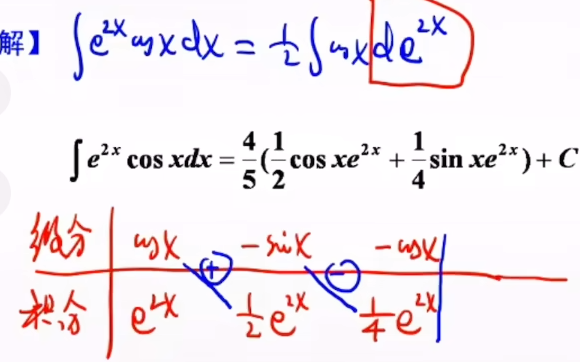 解】 ∫e^{2x}cosxdx = 1/2∫cosxde^{2x}
∫e^{2x} cos xdx = 4/5(1/2 cos xe^{2x} + 1/4 sin xe^{2x}) + C
微分 cosx + -sinx - -cosx
积分 e^{2x} 1/2e^{2x} 1/4e^{2x}